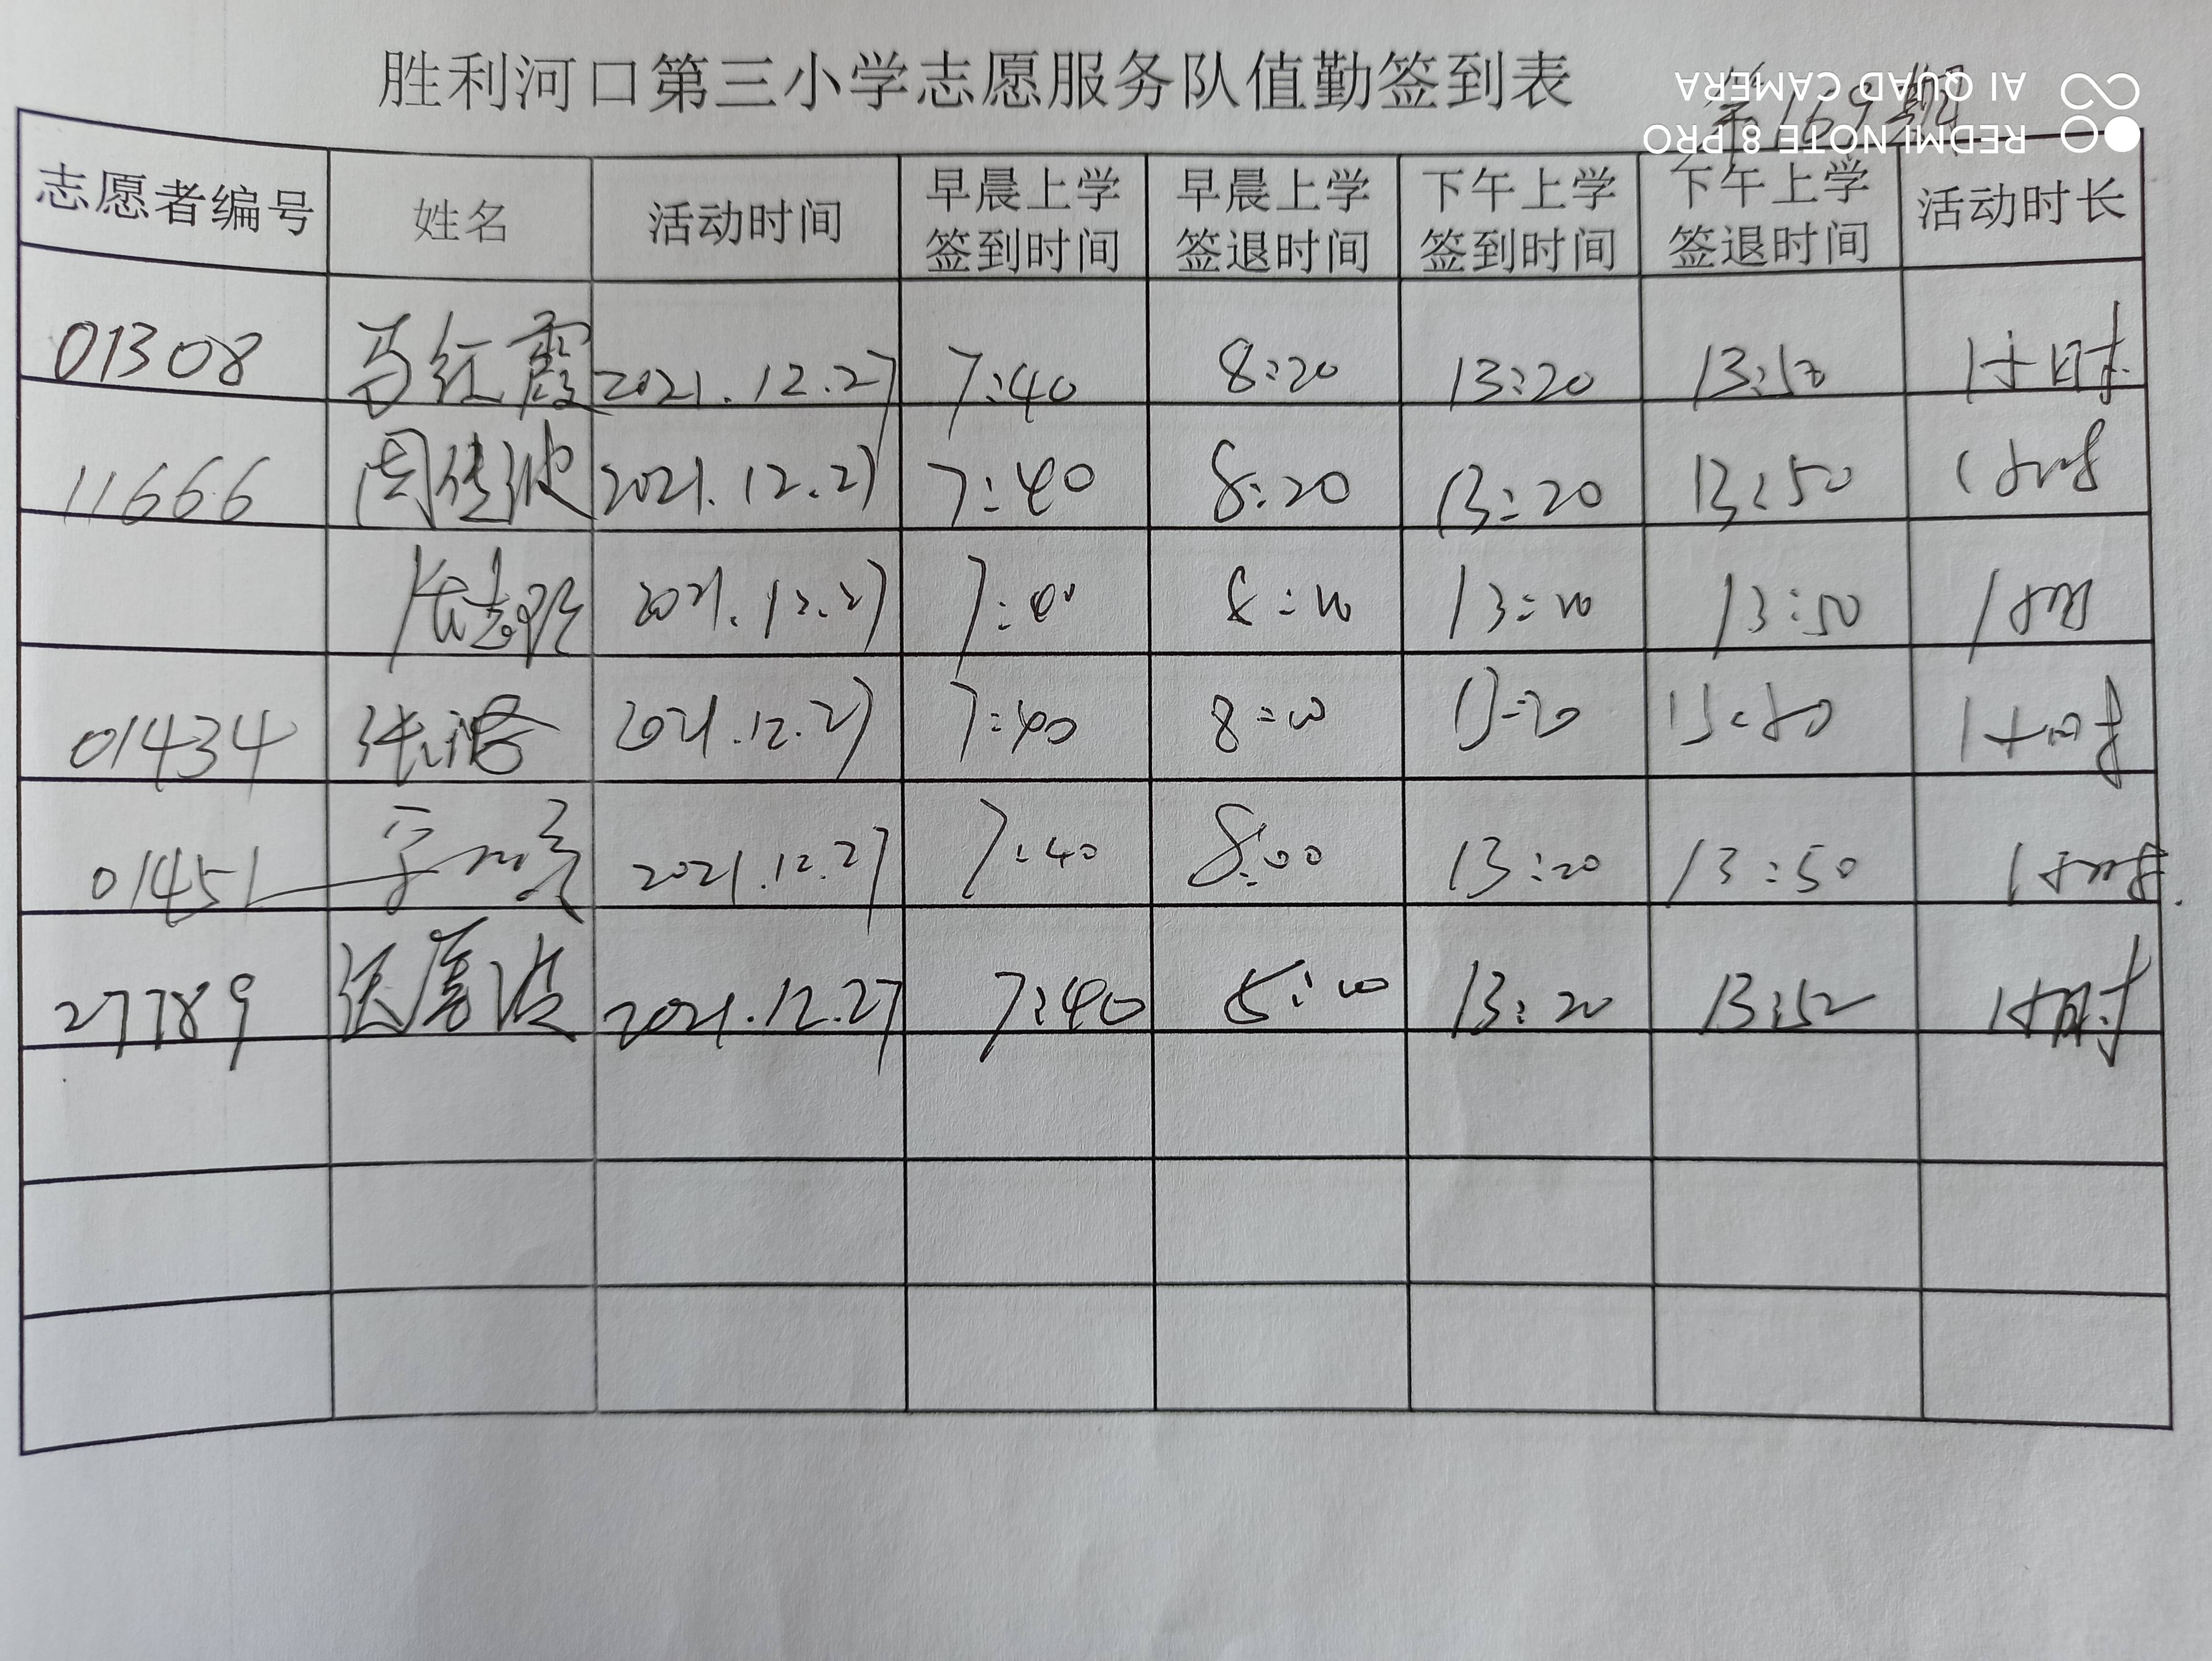 胜利河口第三小学志愿服务队值勤签到表
第169期
AI QUAD CAMERA
REDMI NOTE 8 PRO
志愿者编号 姓名 活动时间 早晨上学签到时间 早晨上学签退时间 下午上学签到时间 下午上学签退时间 活动时长
01308 马红霞 2021.12.27 7:40 8:20 13:20 13:50 1小时
11666 周传波 2021.12.27 7:40 8:20 13:20 13:50 1小时
2021.12.27 7:40 13:20 13:50 1小时
01434 张 2021.12.27 7:40 13:20 13:50 1小时
01451 2021.12.27 7:40 8:00 13:20 13:50 1小时
27789 2021.12.27 7:40 13:20 1小时